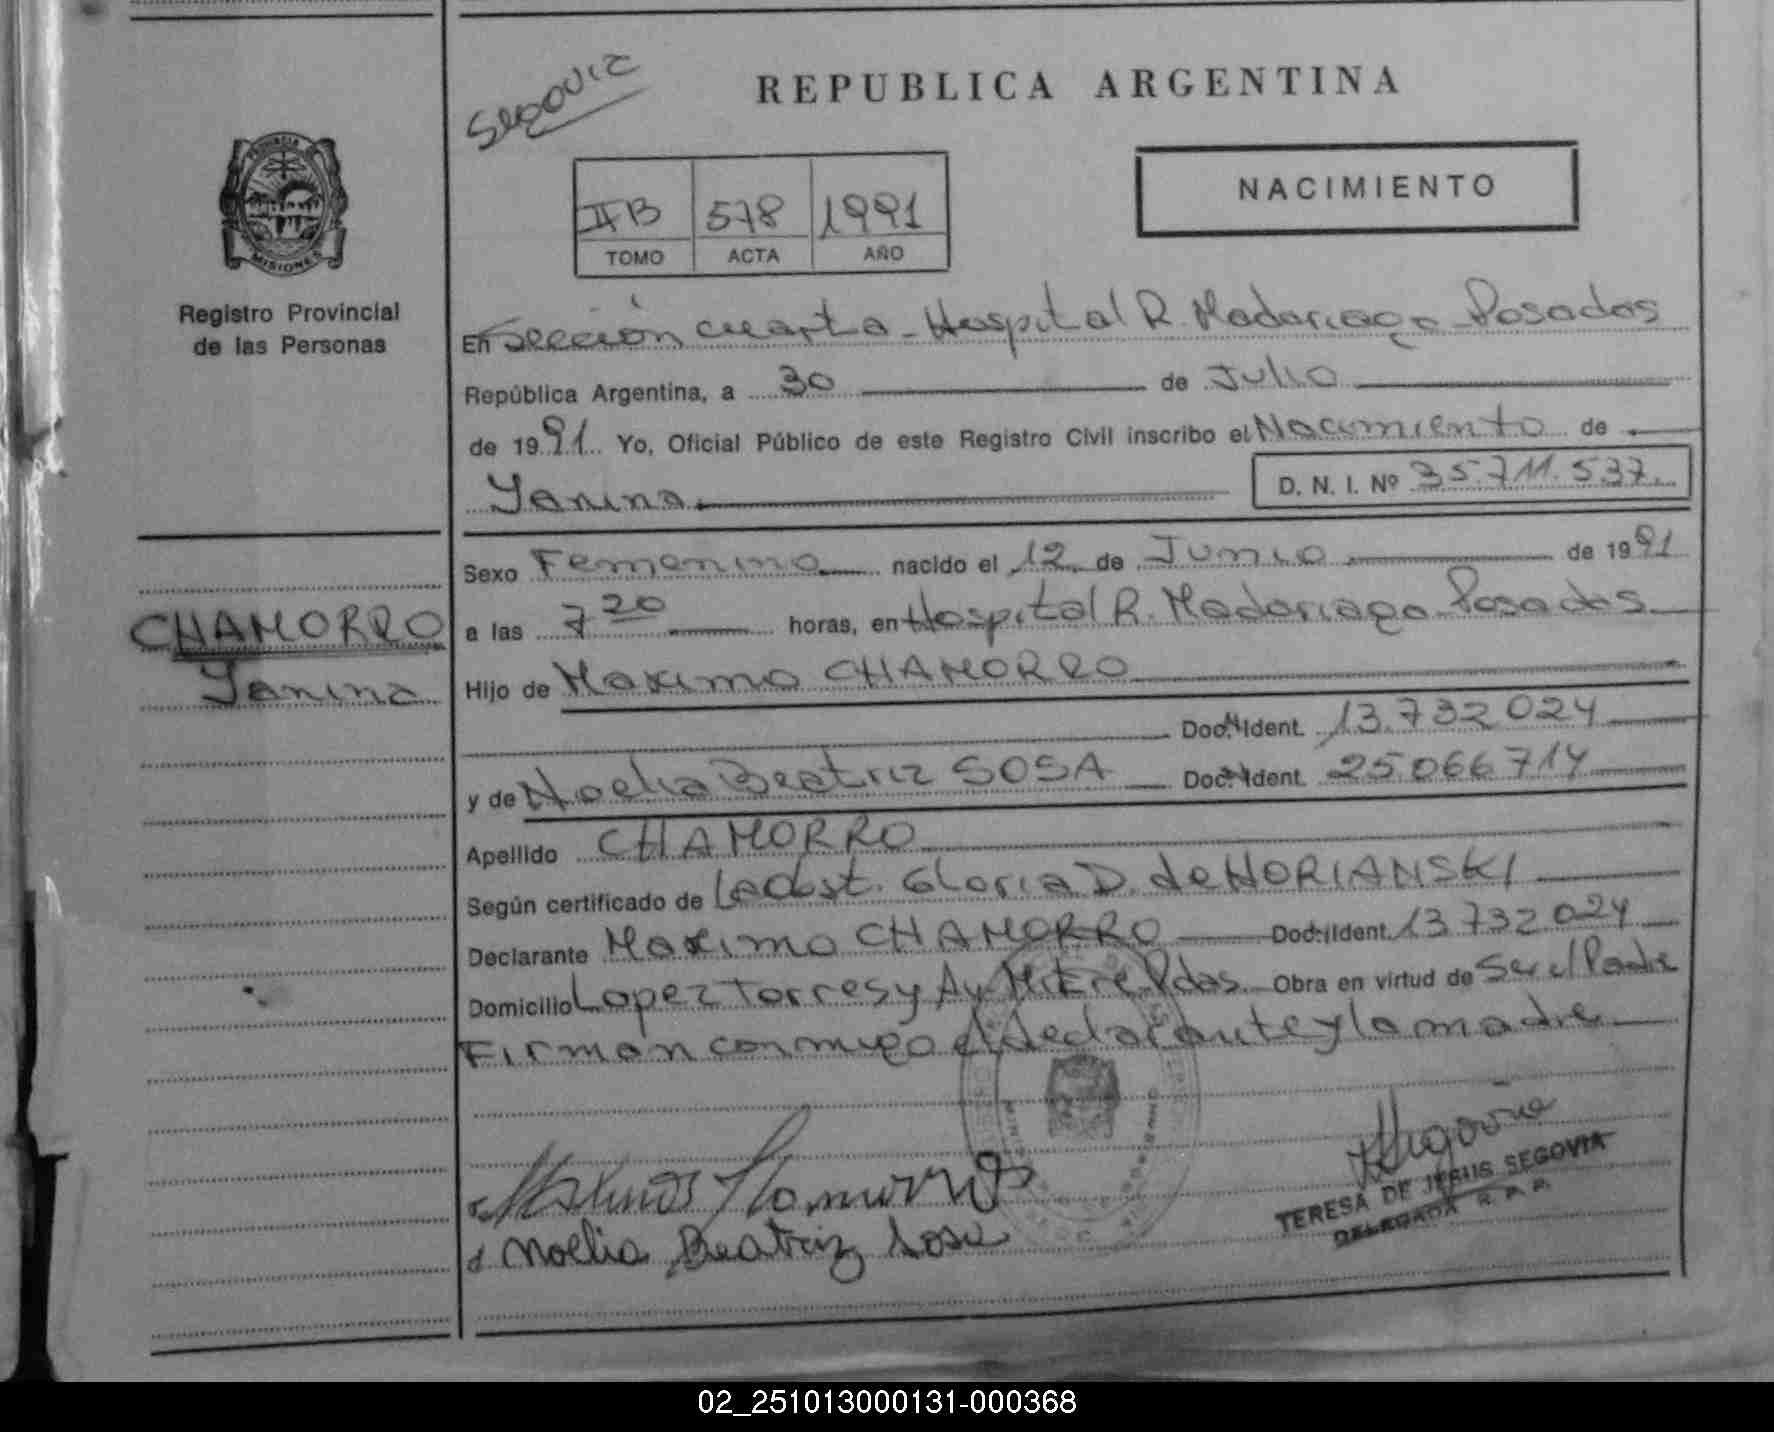 Segovia
REPUBLICA ARGENTINA
PROVINCIA DE
MISIONES
Registro Provincial
de las Personas
NACIMIENTO
IIB 578 1991
TOMO ACTA AÑO
En Sección cuarta - Hospital R. Madariaga - Posadas
República Argentina, a 30 de Julio
de 1991 Yo, Oficial Público de este Registro Civil inscribo el Nacimiento de
Yanina D. N. I. Nº 35.711.537.
Sexo Femenino nacido el 12 de Junio de 1991
CHAMORRO
Yanina
a las 7 20 horas, en Hospital R. Madariaga - Posadas
Hijo de Maximo CHAMORRO
Doc. Ident. 13.732 024
y de Noelia Beatriz SOSA Doc. Ident. 25 066 714
Apellido CHAMORRO
Según certificado de La Obst. Gloria D. de HORIANSKI
Declarante Maximo CHAMORRO Doc. Ident. 13 732 024
Domicilio Lopez Torres y Av. Mitre Pdas. Obra en virtud de Ser el Padre
Firman conmigo el declarante y la madre
Noelia Beatriz Sosa
Segovia
TERESA DE JESUS SEGOVIA
DELEGADA R. P. P.
02_251013000131-000368